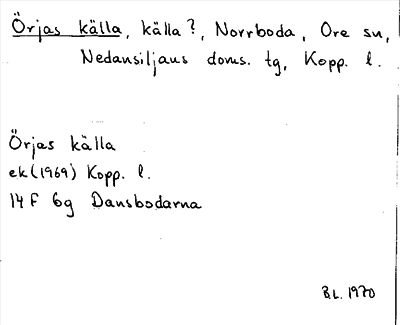 Örjas källa, källa?, Norrboda, Ore sn,
Nedansiljans doms. tg, Kopp. l.
Örjas källa
ek(1969) Kopp. l.
14F 6g Dansbodarna
B.L. 1970